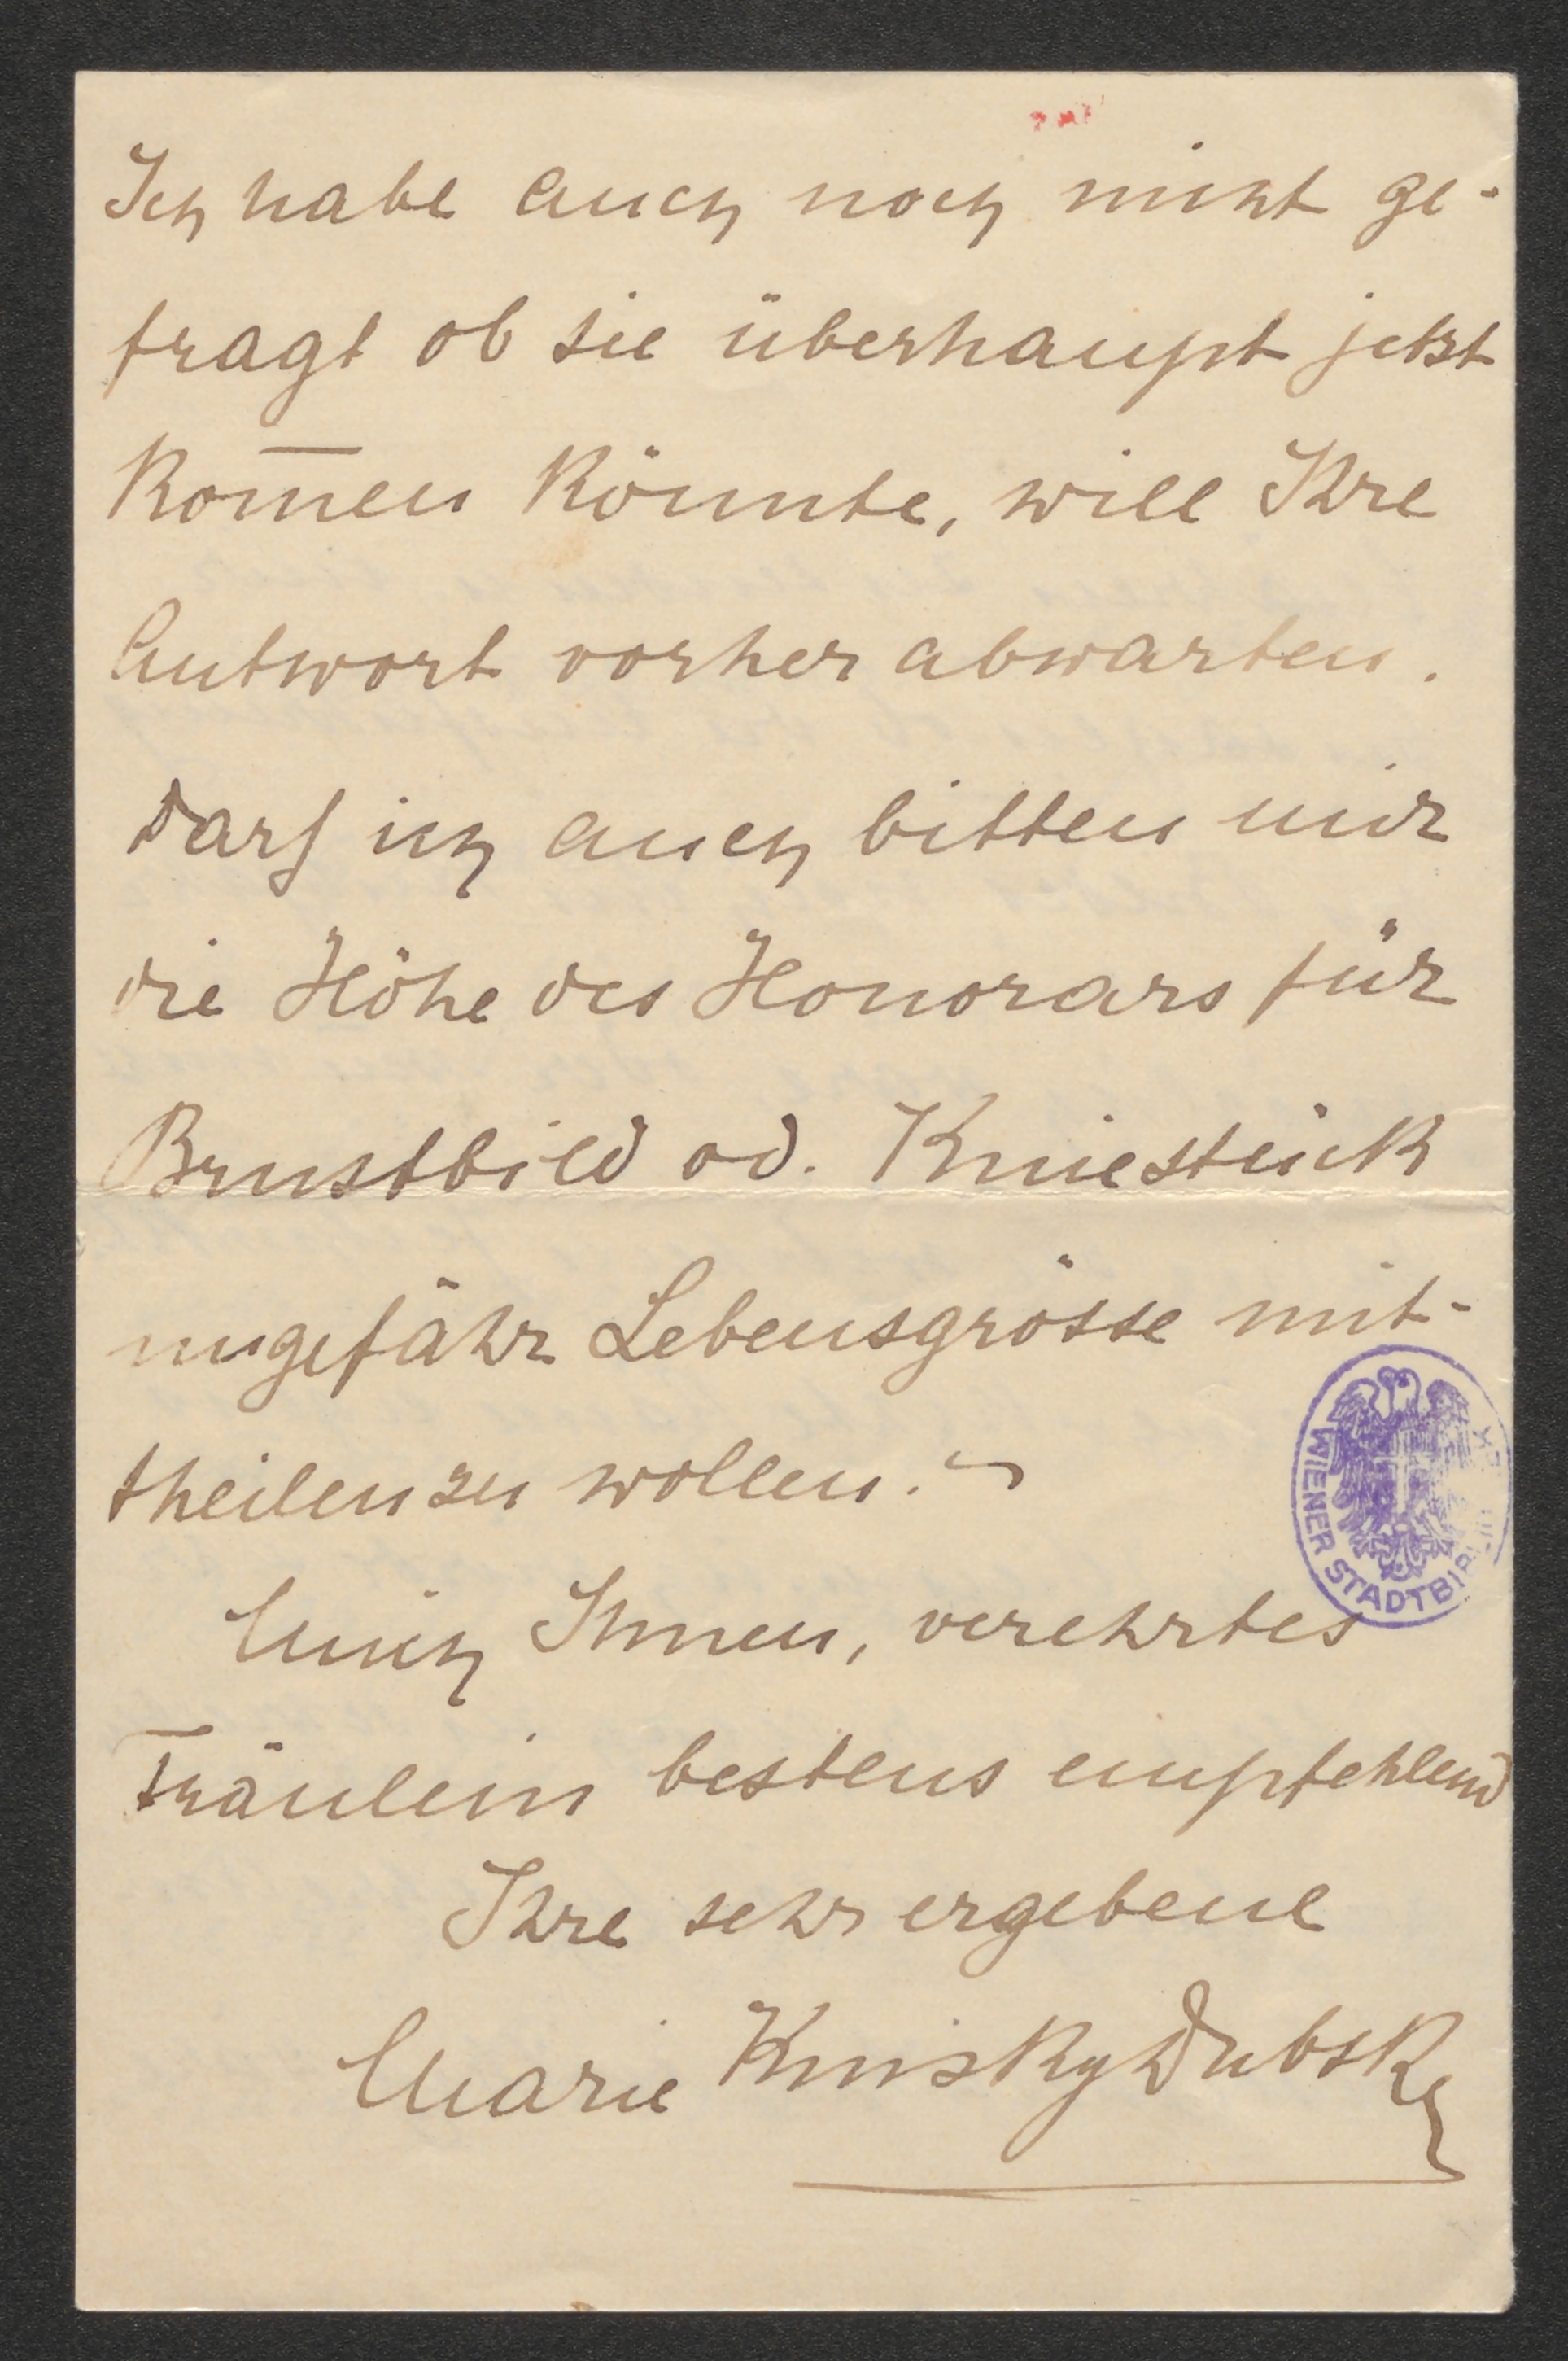 Ich habe auch noch nicht ge-
fragt ob sie überhaupt jetzt
kom̅en könnte, will Ihre
Antwort vorher abwarten.
Darf ich auch bitten mir
die Höhe des Honorars für
Brustbild od. Kniestück
ungefähr Lebensgrösse mit-
theilen zu wollen. ~
Mich Ihnen, verehrtes
Fräulein bestens empfehlend
Ihre sehr ergebene
Marie Kinsky Dubsky
WIENER STADTBIBL